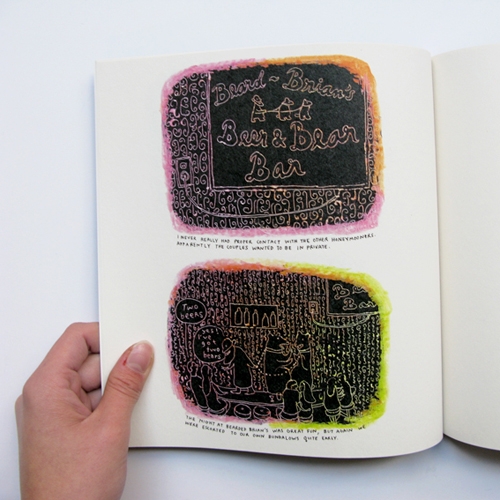 Beard-Brian's
Beer & Bear
Bar
I NEVER REALLY HAD PROPER CONTACT WITH THE OTHER HONEYMOONERS.
APPARENTLY THE COUPLES WANTED TO BE IN PRIVATE.
Ba
TWO
BEERS
THE NIGHT AT BEARDED BRIAN'S WAS GREAT FUN, BUT AGAIN WE
WERE ESCORTED TO OUR OWN BUNGALOWS QUITE EARLY.